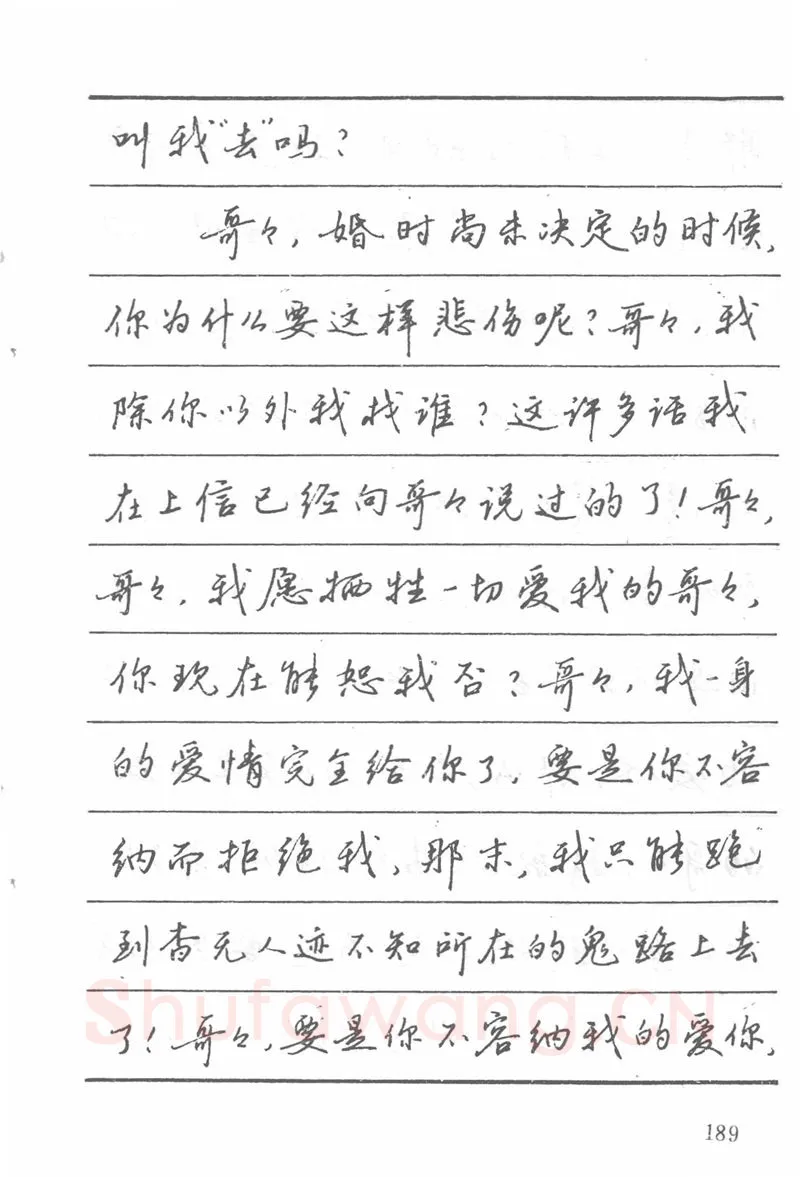 叫我“去”吗？
哥々，婚时尚未决定的时候，
你为什么要这样悲伤呢？哥々，我
除你以外我找谁？这许多话我
在上信已经向哥々说过的了！哥々，
哥々，我愿牺牲一切爱我的哥々，
你现在能恕我否？哥々，我一身
的爱情完全给你了，要是你不容
纳而拒绝我，那末，我只能跑
到杳无人迹不知所在的鬼路上去
了！哥々，要是你不容纳我的爱你，
Shufawang.CN
189